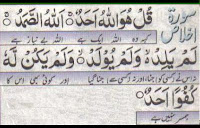 سورة اخلاص
قُلْ هُوَ اللهُ اَحَدٌ ۚ اَللهُ الصَّمَدُ ۚ
کہہ وہ اللہ ایک ہے اللہ بے نیاز ہے
لَمْ يَلِدْ ۙ وَلَمْ يُوْلَدْ ۙ وَلَمْ يَكُنْ لَّهٗ
نہ اس نے کسی کو جنا، اور نہ کسی سے جنا گیا اور کوئی بھی اس کا
كُفُوًا اَحَدٌ
ہمسر نہیں ہے